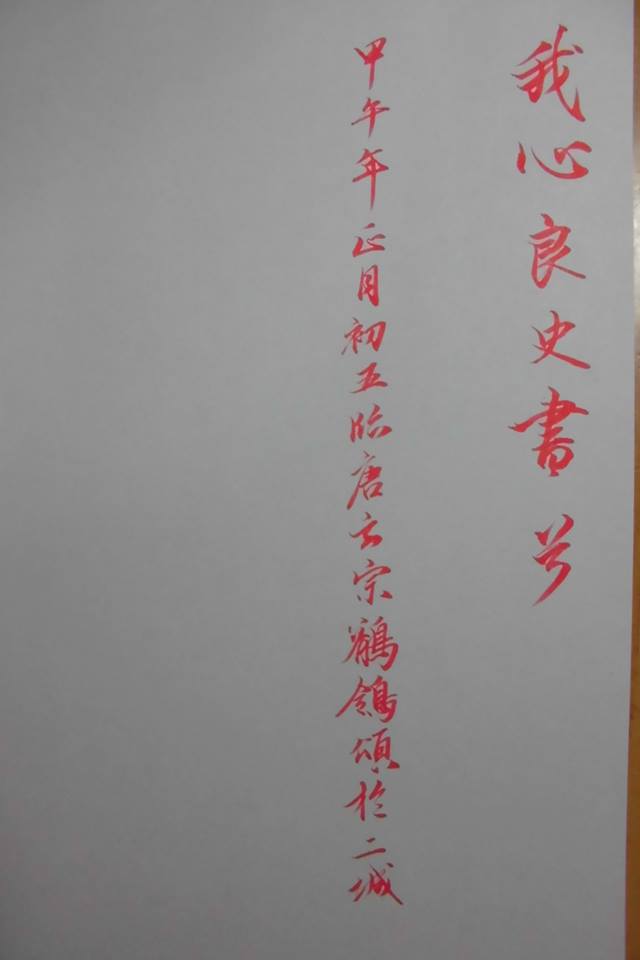 我心良史書兮
甲午年正月初五臨唐玄宗鶺鴒頌於二城